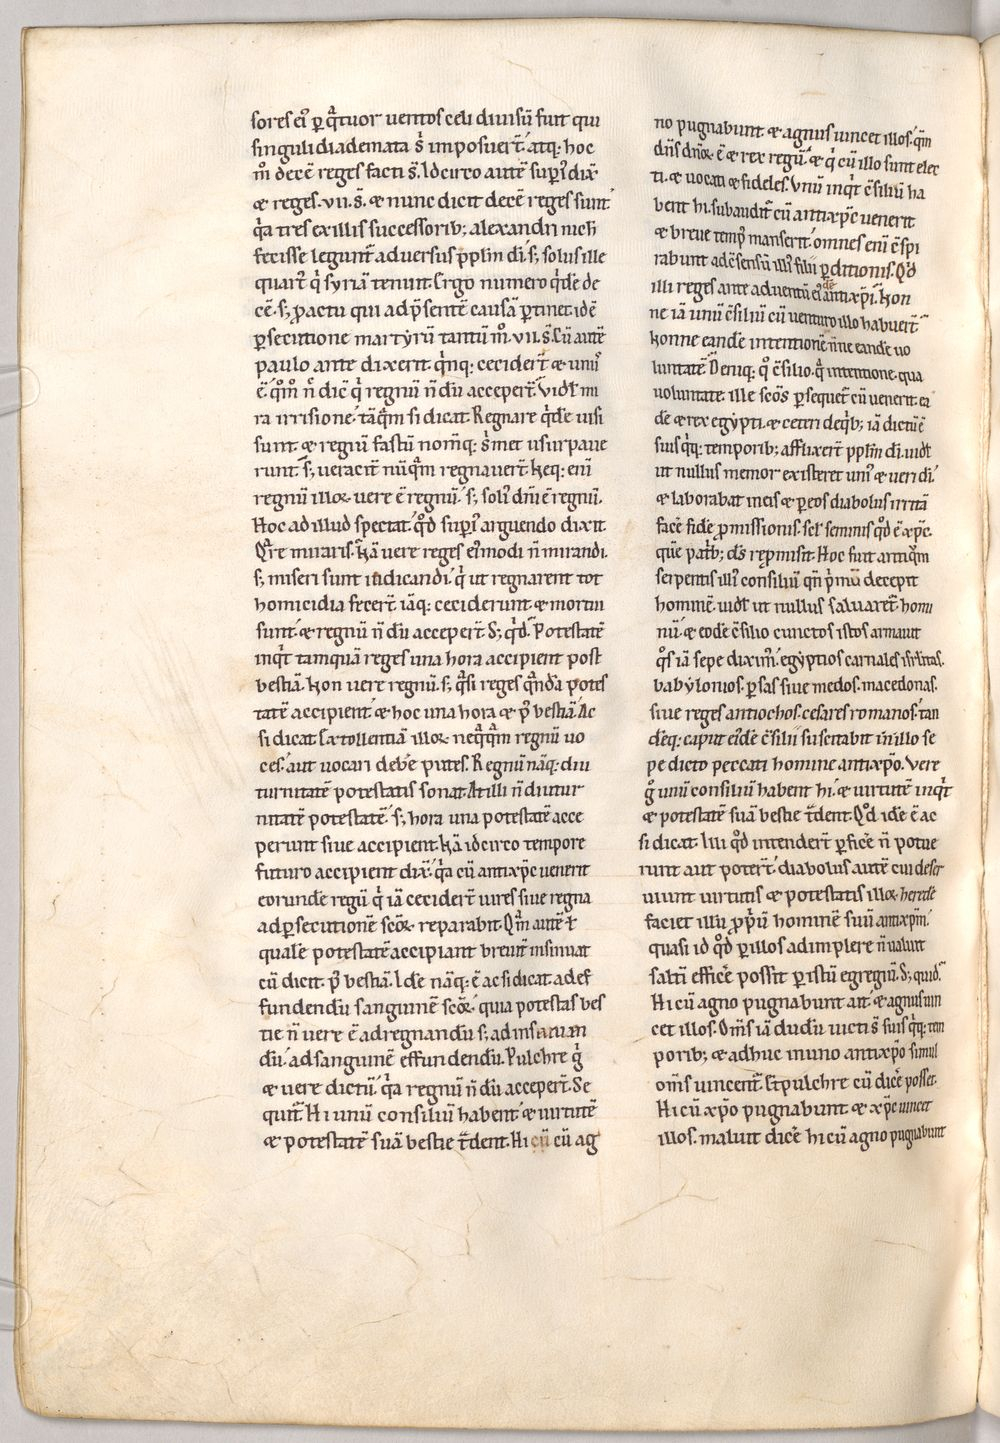 sores ei᷒ ꝑ q̄tuor uentos celi diuisū fuit qui
singuli diademata s̄ imposuer̄t. atq; hoc
m̊ decē reges facti s̄. Idcirco autē supi᷒ dix̄
& reges .vii. s̄. & nunc dicit decē reges sunt
q̄a tres ex illis successorib; alexandri nichł
fecisse legunt᷒ aduersus ppl̄m di. s; solus ille
quart᷒ q̇ syriā tenuit. Ergo numero q̇dē de
cē. s; pactu qui ad p̄sentē causā ꝑtinet. idē
ꝑsecutione martyrū tantū m̊ .vii. s̄. Cū autē
paulo ante dixerit. q̇nq; cecider̄t & unu᷒
ē. q̊m̊ n̄ dic̄ q̇ regnū n̄dū acceper̄t. Vidł mi
ra irrisione. tāq̄m si dicat. Regnare q̇dē uisi
sunt. & regiū fastū nom̄q; s̄met usurpaue
runt. s; ueracit̄ nūq̄m regnauer̄t. Neq; enī
regnū illoꝝ uere ē regnū. s; soli᷒ dn̄i ē regnū.
Hoc ad illud spectat. q̊d supi᷒ arguendo dixit.
Q̄re miraris. Nā uere reges ei᷒modi n̄ mirandi.
s; miseri sunt iudicandi. q̇ ut regnarent tot
homicidia fecer̄t. iāq; ceciderunt & mortui
sunt. & regnū n̄dū acceper̄t. S; q̇d. Potestatē
inq̇t tamquā reges una hora accipient post
bestiā. Non uere regnū. s; q̄si reges q̄ndā potes
tatē accipient. & hoc una hora & p᷒ bestiā. Ac
si dicat. Iā tollentiā illoꝝ neq̄q̄m regnū uo
ces. aut uocari debe᷒ putes. Regnū nāq; diu
turnitatē potestatis sonat. At illi n̄ diutur
nitatē potestatē. s; hora una potestatē acce
perunt siue accipient. Nā idcirco tempore
futuro accipient dix̄. q̄a cū antixp̄c uenerit
eorundē regū q̇ iā cecider̄t uires siue regna
ad ꝑsecutionē sc̄oꝝ reparabit. Q̄m autē ł
qualē potestatē accipiant breuit̄ insinuat
cū dicit p᷒ bestiā. Idē nāq; ē ac si dicat. ad ef
fundendū sanguinē sc̄oꝝ. quia potestas bes
tie n̄ uere ē ad regnandū s; ad
dū. ad sanguinē effundendū. Pulchre g̊
& uere dictū. q̄a regnū n̄dū acceper̄t. Se
quit᷒. Hi unū consiliū habent. & uirtutē
& potestatē suā bestie t̄dent. Hi cū cū ag
no pugnabunt & agnus uincet illos. q̄m
dn̄s dn̄oꝝ ē & rex regū. & q̇ cū illo sunt elec
ti. & uocati & fideles. Vnū inq̇t c̄siliū ha
bent hi. subaudit᷒ cū antixp̄c uenerit
& breue temp᷒ manserit. omnes enī c̄spi
rabunt ad c̄sensū illi᷒ filii ꝑditionis. Q̊d
illi reges ante aduentū ei᷒ de antixp̄i. Non
ne iā unū c̄siliū cū uenturo illo habuer̄t.
Nonne eandē intentionē n̄ne eandē uo
luntatē. Deniq; q̊ c̄silio. q̄ intentione. qua
uoluntate. ille sc̄os ꝑsequet᷒ cū uenerit. ea
dē & rex egypti. & ceteri deq̇b; iā dictū ē
suis q̇q; temporib; afflixer̄t ppl̄m di. uidł
ut nullus memor existeret uni᷒ & ueri di.
& laborabat in eis & ꝑ eos diabolus irritā
facē fidē ꝓmissionis. scł seminis q̊d ē xp̄c.
quē patb; ds̄ repmisit. Hoc fuit antiq̄m
serpentis illi᷒ consiliū qn̄ ṗmū decepit
hominē. uidł ut nullus saluaret᷒ homi
nū. & eodē c̄silio cunctos istos armauit
q̊s iā sepe diximᷤ. egyptios carnales isrłitas.
babylonios. ꝑsas siue medos. macedonas.
siue reges antiochos. cesares romanos. tan
dēq; caput ei᷒dē c̄silii suscitabit in illo se
pe dicto peccati homine antixp̄o. Vere
g̊ unū consiliū habent hi. & uirtutē inq̇t
& potestatē suā bestie t̄dent. Q̊d idē ē ac
si dicat. Illi q̊d intender̄t ꝑficē n̄ potue
runt aut poter̄t. diabolus autē cui deser
uiunt uirtutis & potestatis illoꝝ heredē
faciet illū ꝓṗū hominē suū antixp̄m.
quasi id q̊d ꝑ illos adimplere n̄ ualuit
saltī efficē possit ꝑ istū egregiū. S; quid.
Hi cū agno pugnabunt ait. & agnus uin
cet illos. Om̄s iā dudū uicti s̄ suis q̇q; tem
porib; & adhuc in uno antixp̄o simul
om̄s uincent᷒. Et pulchre cū dicē posset.
Hi cū xp̄o pugnabunt & xp̄c uincet
illos. maluit dicē hi cū agno pugnabunt